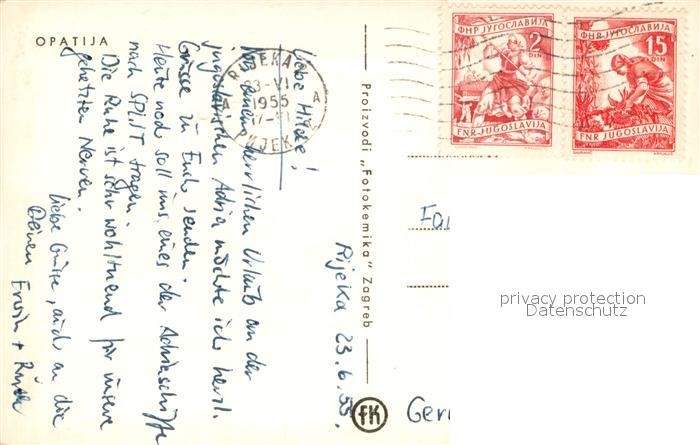 OPATIJA
Rijeka 23.6.55.
Liebe Hilde!
Von einem herrlichen Urlaub an der
jugoslavischen Adria möchte ich herzl.
Grüsse zu Euch senden.
Heute noch soll uns eines der Adriaschiffe
nach SPLIT tragen.
Die Ruhe ist sehr wohltuend für unsere
gehetzten Nerven.
Liebe Grüße, auch an die
Deinen Erwin +
RIJEKA
23-VI
1955
A A
RIJEKA
Proizvodi „Fotokemika" Zagreb
FK
ФНР ЈУГОСЛАВИЈА
2
DIN
FNR JUGOSLAVIJA
ФНР ЈУГОСЛАВИЈА
15
DIN
FNR JUGOSLAVIJA
privacy protection
Datenschutz